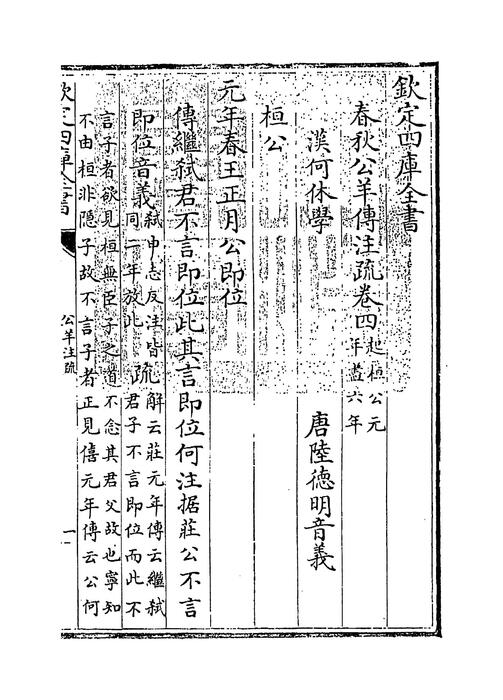 欽定四庫全書
春秋公羊傳注疏卷四起桓公元
年盡六年
漢何休學
唐陸德明音義
桓公
元年春王正月公即位
傳繼弒君不言即位此其言即位何注據莊公不言
即位音義弒申志反注皆
同二年放此
疏解云莊元年傳云繼弒
君子不言即位而此不
言子者欲見桓無臣子之道不念其君父故也寧知
不由桓非隠子故不言子者正見僖元年傳云公何
欽定四庫全書
公羊注疏
一